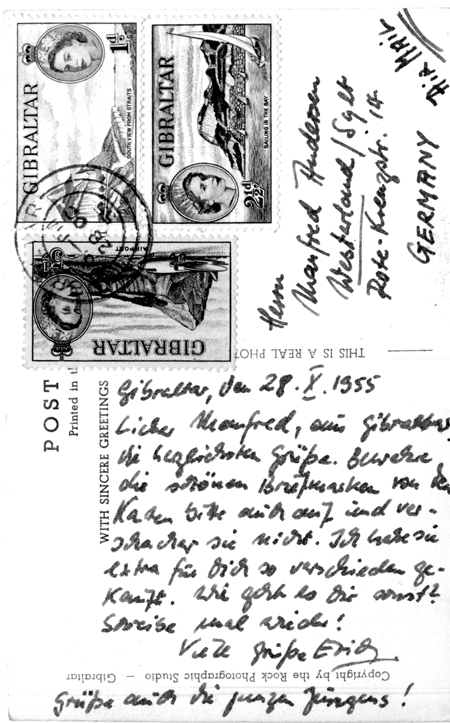 GIBRALTAR
1½d
SOUTH VIEW FROM STRAITS
GIBRALTAR
2½d
SAILING IN THE BAY
GIBRALTAR
AIRPORT
28
Air Mail
Herrn
Manfred Andersen
Westerland/Sylt
Rote-Kreuzstr. 14
GERMANY
THIS IS A REAL PHOT
POST
Printed in t
WITH SINCERE GREETINGS
Gibraltar, den 28. X. 1955
Lieber Manfred, aus Gibraltar
die herzlichsten Grüße. Bewahre
die schönen Briefmarken von den
Karten bitte auch auf und ver-
schacher sie nicht. Ich habe sie
extra für Dich so verschieden ge-
kauft. Wie geht es Dir sonst?
Schreibe mal wieder!
Viele Grüße Erich
Copyright by the Rock Photographic Studio – Gibraltar
Grüße auch die jungen Jüngens!